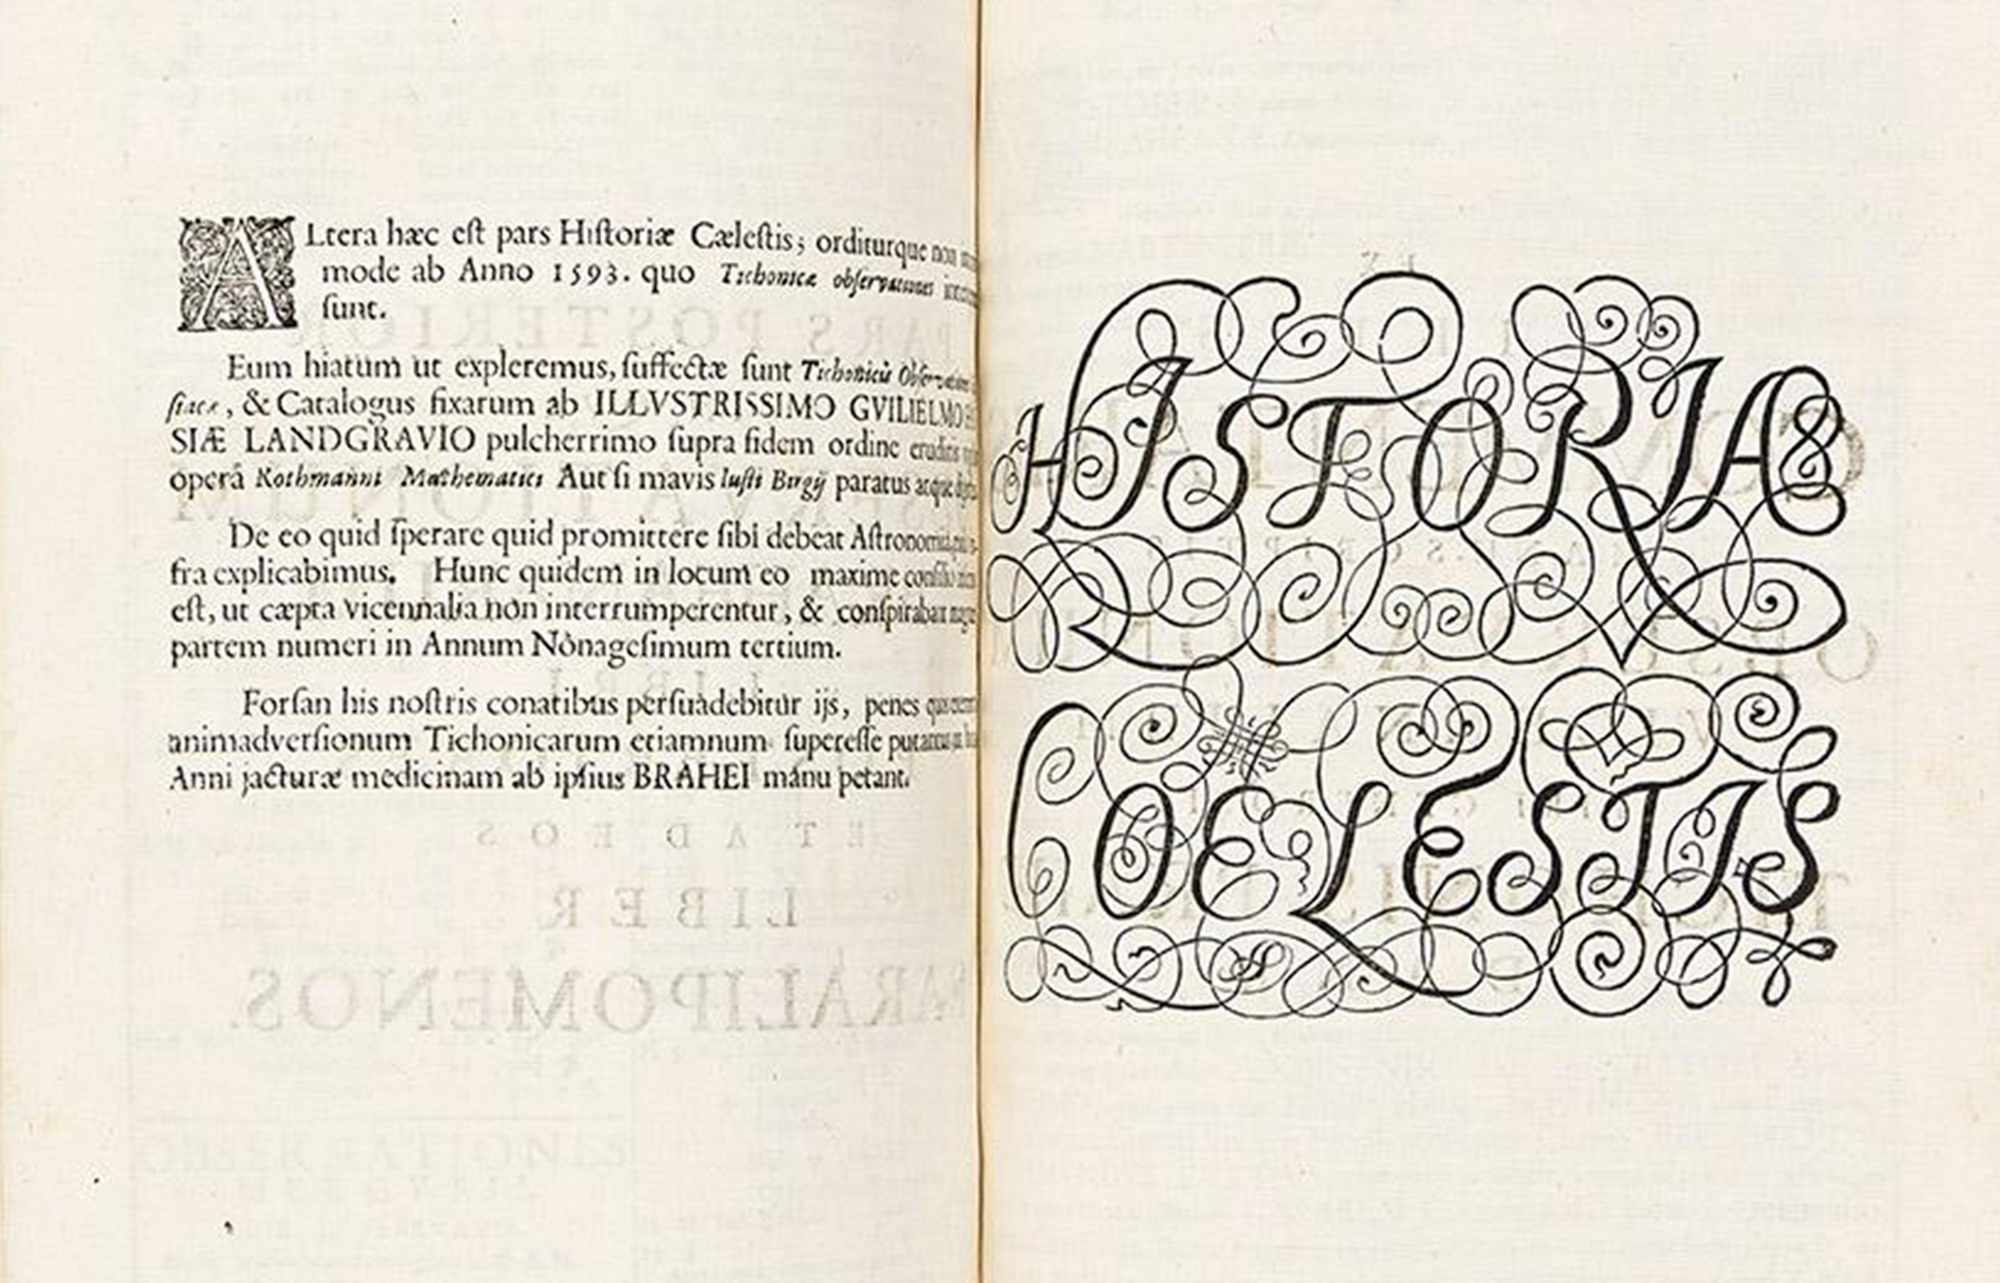 ALtera hæc eſt pars Hiſtoriæ Cæleſtis; orditurque non
mode ab Anno 1593. quo Tichonicæ obſervationes
ſunt.
Eum hiatum ut expleremus, ſuffectæ ſunt Tichonicis
, & Catalogus fixarum ab ILLVSTRISSIMO GVILIELMO
SIÆ LANDGRAVIO pulcherrimo ſupra fidem ordine
operâ Rothmanni Mathematici Aut ſi mavis Iuſti Birgÿ paratus atque
De eo quid ſperare quid promittere ſibi debeat
fra explicabimus. Hunc quidem in locum eo maxime
eſt, ut cæpta vicennalia non interrumperentur, & conſpirabat
partem numeri in Annum Nonageſimum tertium.
Forſan his noſtris conatibus perſuadebitur ijs, penes
animadverſionum Tichonicarum etiamnum ſupereſſe
Anni jacturæ medicinam ab ipſius BRAHEI manu petant.
HISTORIA
COELESTIS